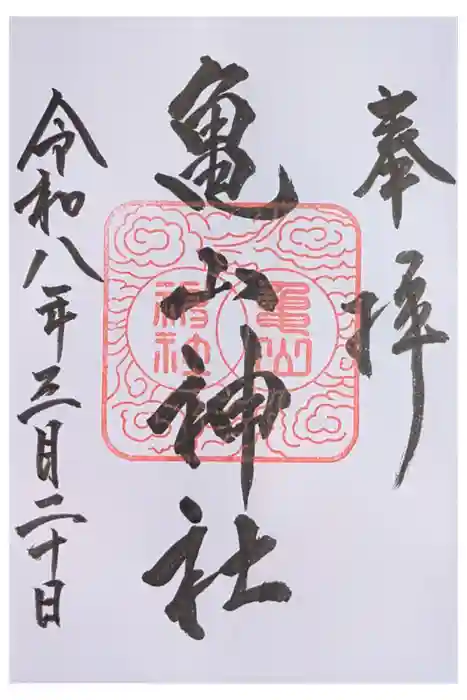 奉拝
亀山神社
亀山
神社
令和八年三月二十日